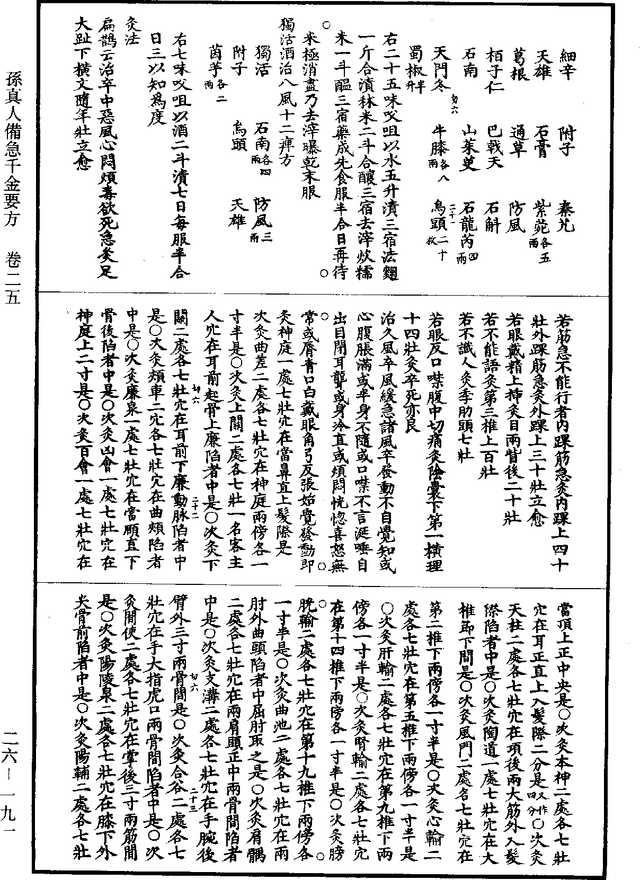 孫真人備急千金要方　卷二五
二六—一九一
細辛　附子　秦艽
天雄　石膏　紫菀各五兩
葛根　通草　防風
栢子仁　巴戟天　石斛
石南　山茱萸　石龍芮四兩
天門冬　牛膝各八兩　烏頭二十枚
蜀椒半升
右二十五味㕮咀以水五升漬三宿法麴
一斤合漬秫米二斗合釀三宿去滓炊糯
米一斗釀三宿藥成先食服半合日再待
米極消盡乃去滓曝乾末服
獨活酒治八風十二痺方
獨活　石南各四兩　防風三兩
附子　烏頭　天雄
茵芋各二兩
右七味㕮咀以酒二斗漬七日每服半合
日三以知爲度
灸法
扁鵲云治卒中惡風心悶煩毒欲死急灸足
大趾下橫文隨年壯立愈
若筋急不能行者内踝筋急灸内踝上四十
壯外踝筋急灸外踝上三十壯立愈
若眼戴精上揷灸目兩眥後二十壯
若不能語灸第三椎上百壯
若不識人灸季肋頭七壯
若眼反口噤腹中切痛灸陰囊下第一橫理
十四壯灸卒死亦良
治久風卒風緩急諸風卒發動不自覺知或
心腹脹滿或半身不隨或口噤不言涎唾自
出目閉耳聾或身冷直或煩悶恍惚喜怒無
常或脣青口白戴眼角弓反張始覺發動即
灸神庭一處七壯穴在當鼻直上髮際是
次灸曲差二處各七壯穴在神庭兩傍各一
寸半是○次灸上關二處各七壯一名客主
人穴在耳前起骨上廉陷者中是○次灸下
關二處各七壯穴在耳前下廉動脉陷者中
是○次灸頰車二穴各七壯穴在曲頰陷者
中是○次灸廉泉一處七壯穴在當頤直下
骨後陷者中是○次灸顖會一處七壯穴在
神庭上二寸是○次灸百會一處七壯穴在
當頂上正中央是○次灸本神二處各七壯
穴在耳正直上入髮際二分是又作四分○次灸
天柱二處各七壯穴在項後兩大筋外入髮
際陷者中是○次灸陶道一處七壯穴在大
椎節下間是○次灸風門二處各七壯穴在
第二椎下兩傍各一寸半是○次灸心輸二
處各七壯穴在第五椎下兩傍各一寸半是
○次灸肝輸二處各七壯穴在第九椎下兩
傍各一寸半是○次灸腎輸二處各七壯穴
在第十四椎下兩傍各一寸半是○次灸膀
胱輸二處各七壯穴在第十九椎下兩傍各
一寸半是○次灸曲池二處各七壯穴在兩
肘外曲頭陷者中屈肘取之是○次灸肩髃
二處各七壯穴在兩肩頭正中兩骨間陷者
中是○次灸支溝二處各七壯穴在手腕後
臂外三寸兩骨間是○次灸合谷二處各七
壯穴在手大指虎口兩骨間陷者中是○次
灸間使二處各七壯穴在掌後三寸兩筋間
是○次灸陽陵泉二處各七壯穴在膝下外
尖骨前陷者中是○次灸陽輔二處各七壯